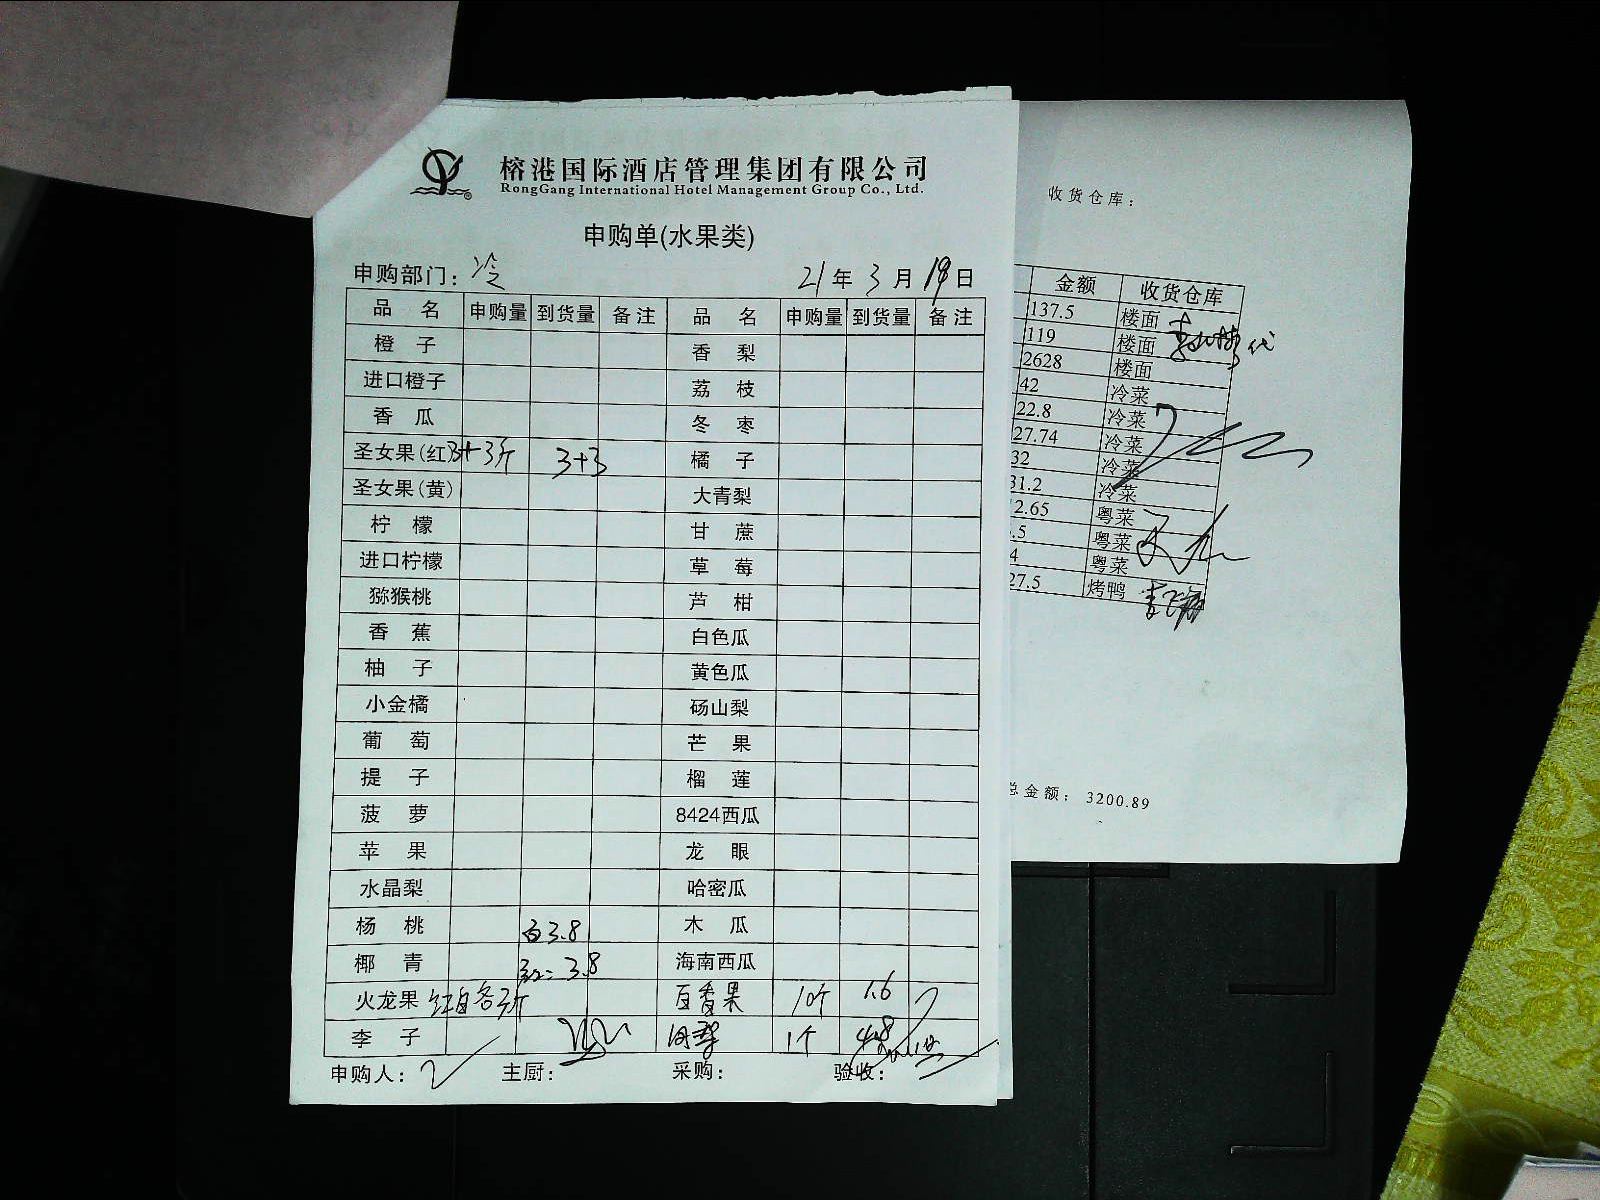 榕港国际酒店管理集团有限公司
RongGang International Hotel Management Group Co., Ltd.
申购单(水果类)
申购部门：冷 21年3月19日
品名 申购量 到货量 备注 品名 申购量 到货量 备注
橙子 香梨
进口橙子 荔枝
香瓜 冬枣
圣女果(红) 3+3斤 3+3 橘子
圣女果(黄) 大青梨
柠檬 甘蔗
进口柠檬 草莓
猕猴桃 芦柑
香蕉 白色瓜
柚子 黄色瓜
小金橘 砀山梨
葡萄 芒果
提子 榴莲
菠萝 8424西瓜
苹果 龙眼
水晶梨 哈密瓜
杨桃 白3.8 木瓜
椰青 红:3.8 海南西瓜
火龙果 红白各3斤 百香果 10个 1.6
李子 1个 4.8
申购人： 主厨: 采购: 验收:
收货仓库：
金额 收货仓库
137.5 楼面
119 楼面
2628 楼面
42 冷菜
22.8 冷菜
27.74 冷菜
32 冷菜
31.2 冷菜
2.65 粤菜
.5 粤菜
4 粤菜
27.5 烤鸭
总金额：3200.89